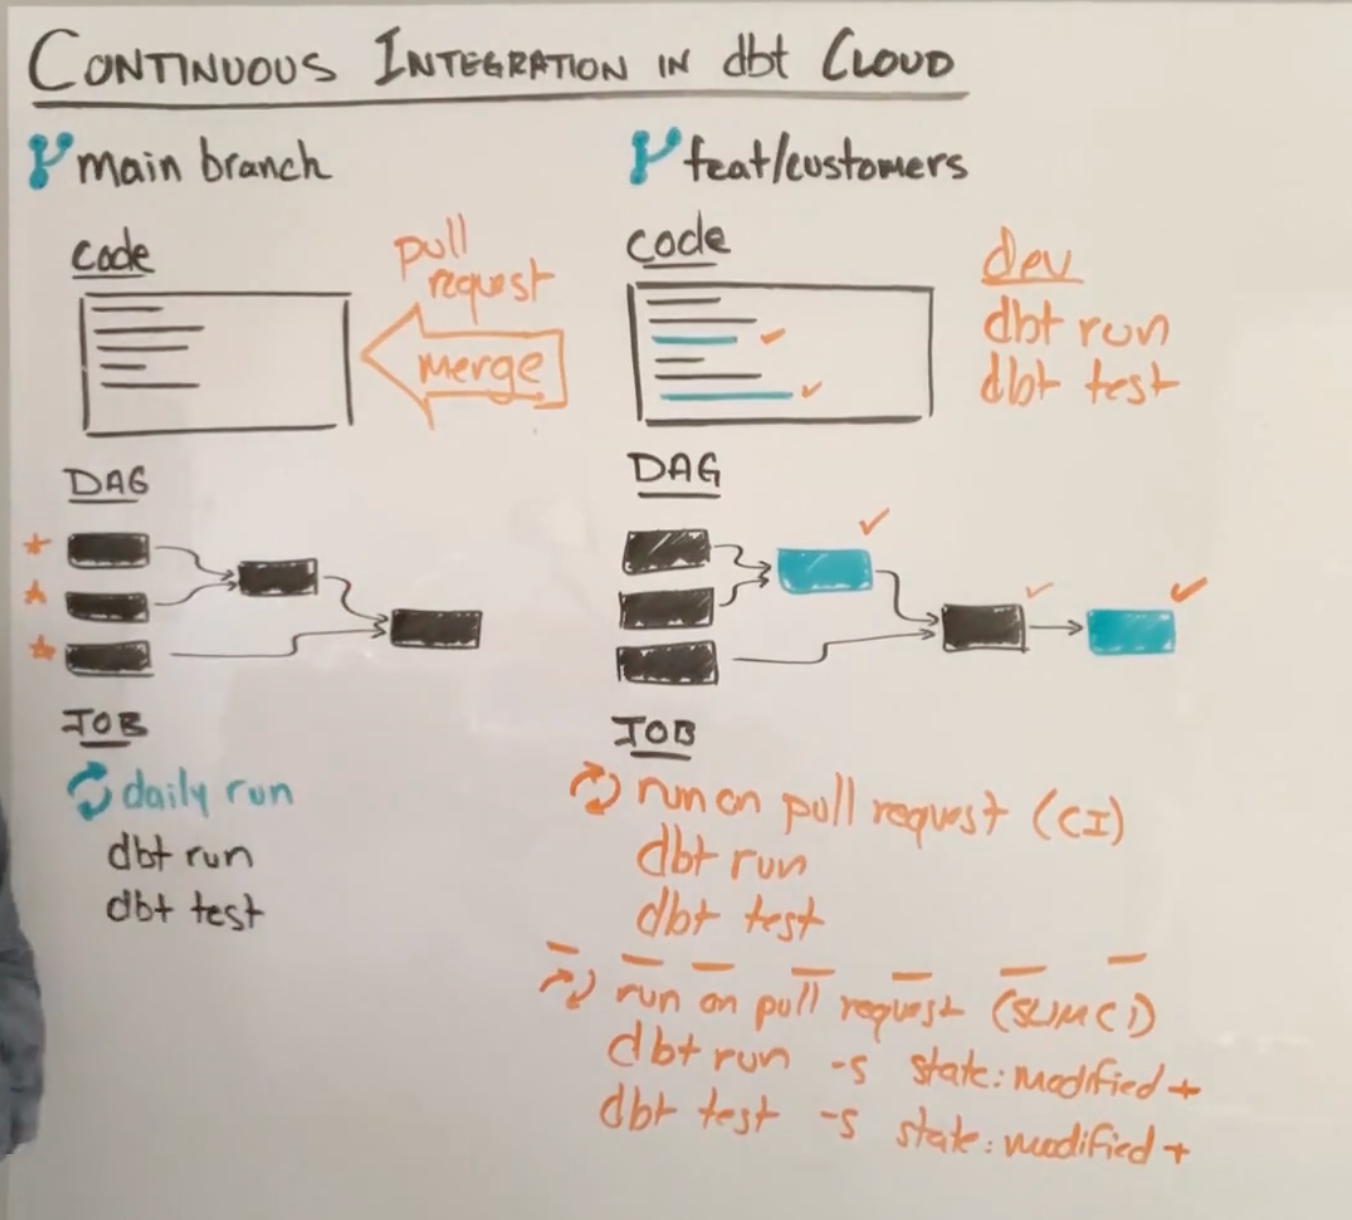 CONTINUOUS INTEGRATION IN dbt CLOUD
main branch
code
pull
request
merge
DAG
JOB
daily run
dbt run
dbt test
feat/customers
code
dev
dbt run
dbt test
DAG
JOB
run on pull request (CI)
dbt run
dbt test
run on pull request (SLIM CI)
dbt run -s state:modified+
dbt test -s state:modified+